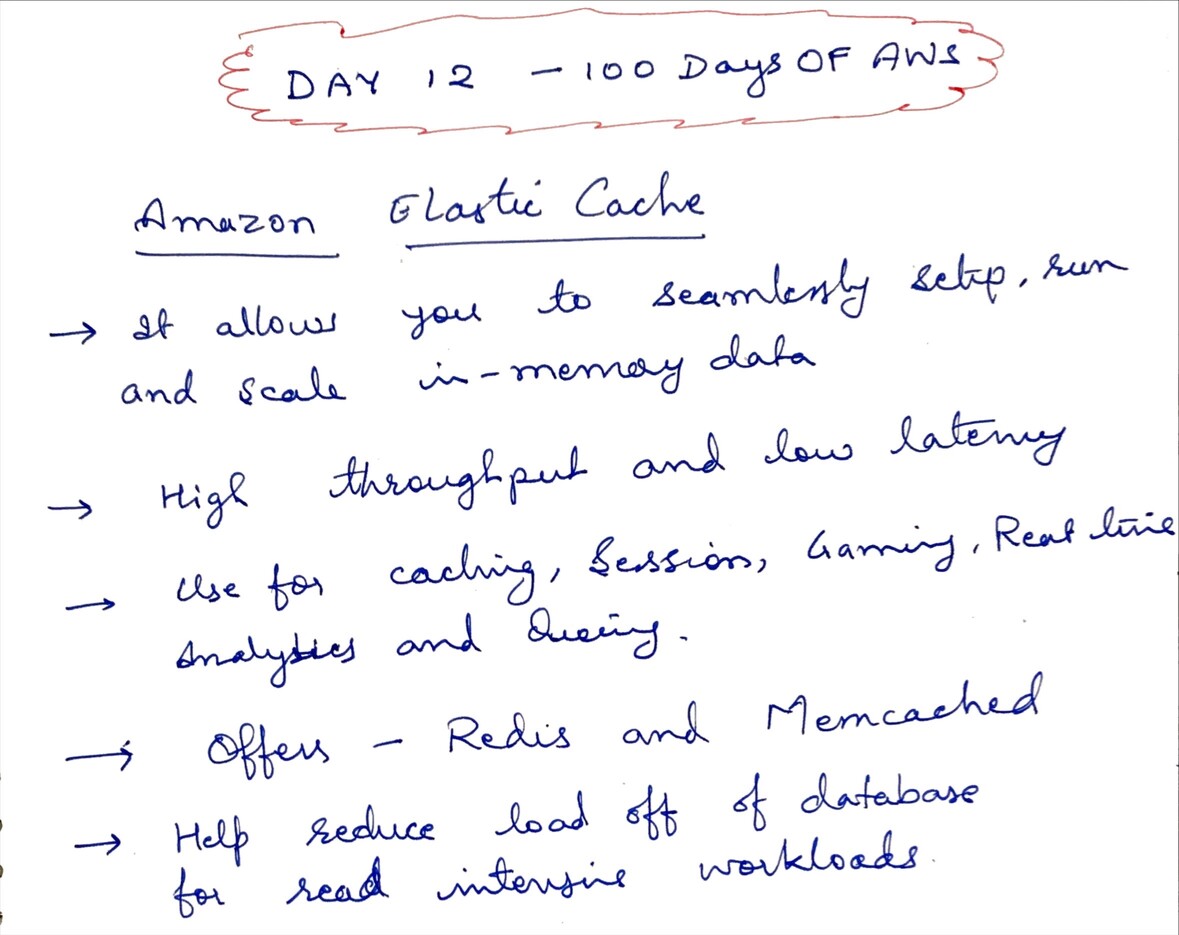 DAY 12 - 100 Days OF AWS
Amazon Elastic Cache
→ It allows you to seamlessly setup, run
and scale in-memory data
→ High throughput and low latency
→ Use for caching, Session, Gaming, Real time
Analytics and Queing.
→ Offers - Redis and Memcached
→ Help reduce load off of database
for read intensive workloads.